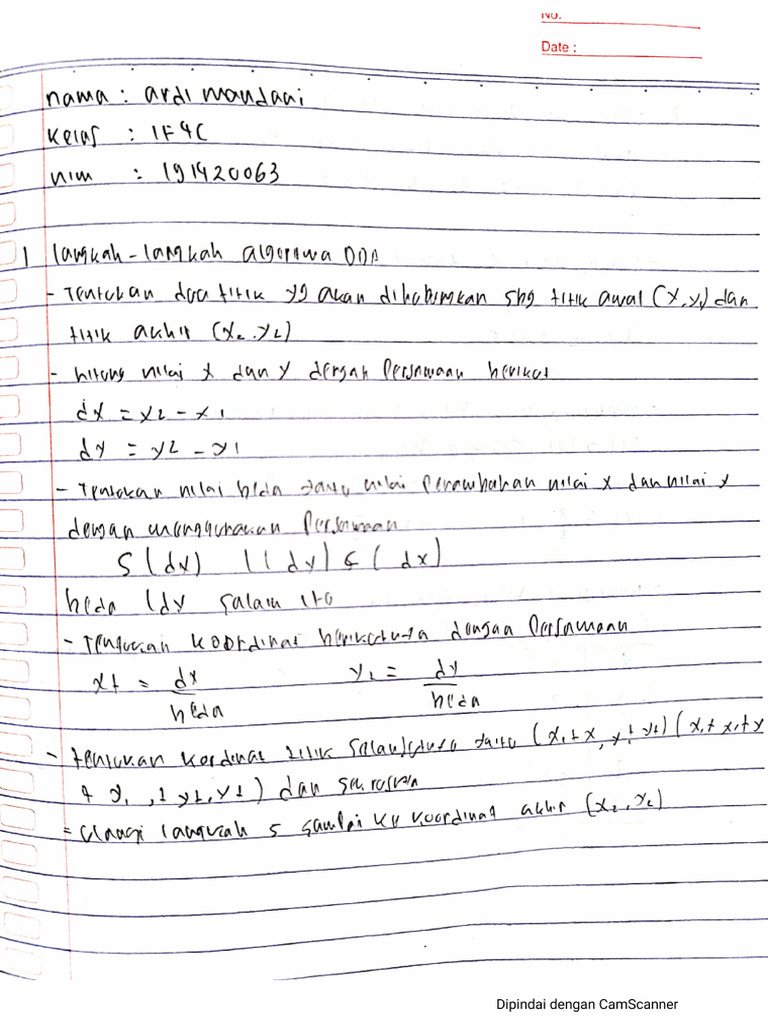 NO.
Date :
nama : ardi mandani
Kelas : IF4C
nim : 191420063
1 langkah-langkah algoritma DDA
- Tentukan dua titik yg akan dihubungkan sbg titik awal (x, y1) dan
titik akhir (x2, y2)
- hitung nilai x dan y dengan Persamaan berikut
dx = x2 - x1
dy = y2 - y1
- Tentukan nilai beda yaitu nilai Penambahan nilai x dan nilai y
dengan menggunakan Persamaan
(dx) (dy) (dx)
beda (dy
- Tentukan koordinat berikutnya dengan Persamaan
xt = dx / beda y2 = dy / beda
- tentukan kordinat titik selanjutnya yaitu (x1 + x, y1 + yt) (x1 + x1 + y
+ y1, + y1, y1) dan seterusnya
= Ulangi langkah 5 sampai ke koordinat akhir (x2, y2)
Dipindai dengan CamScanner